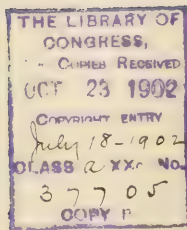 THE LIBRARY OF
CONGRESS,
COPIES RECEIVED
OCT 23 1902
COPYRIGHT ENTRY
July 18-1902
CLASS a XXc No.
37705
COPY